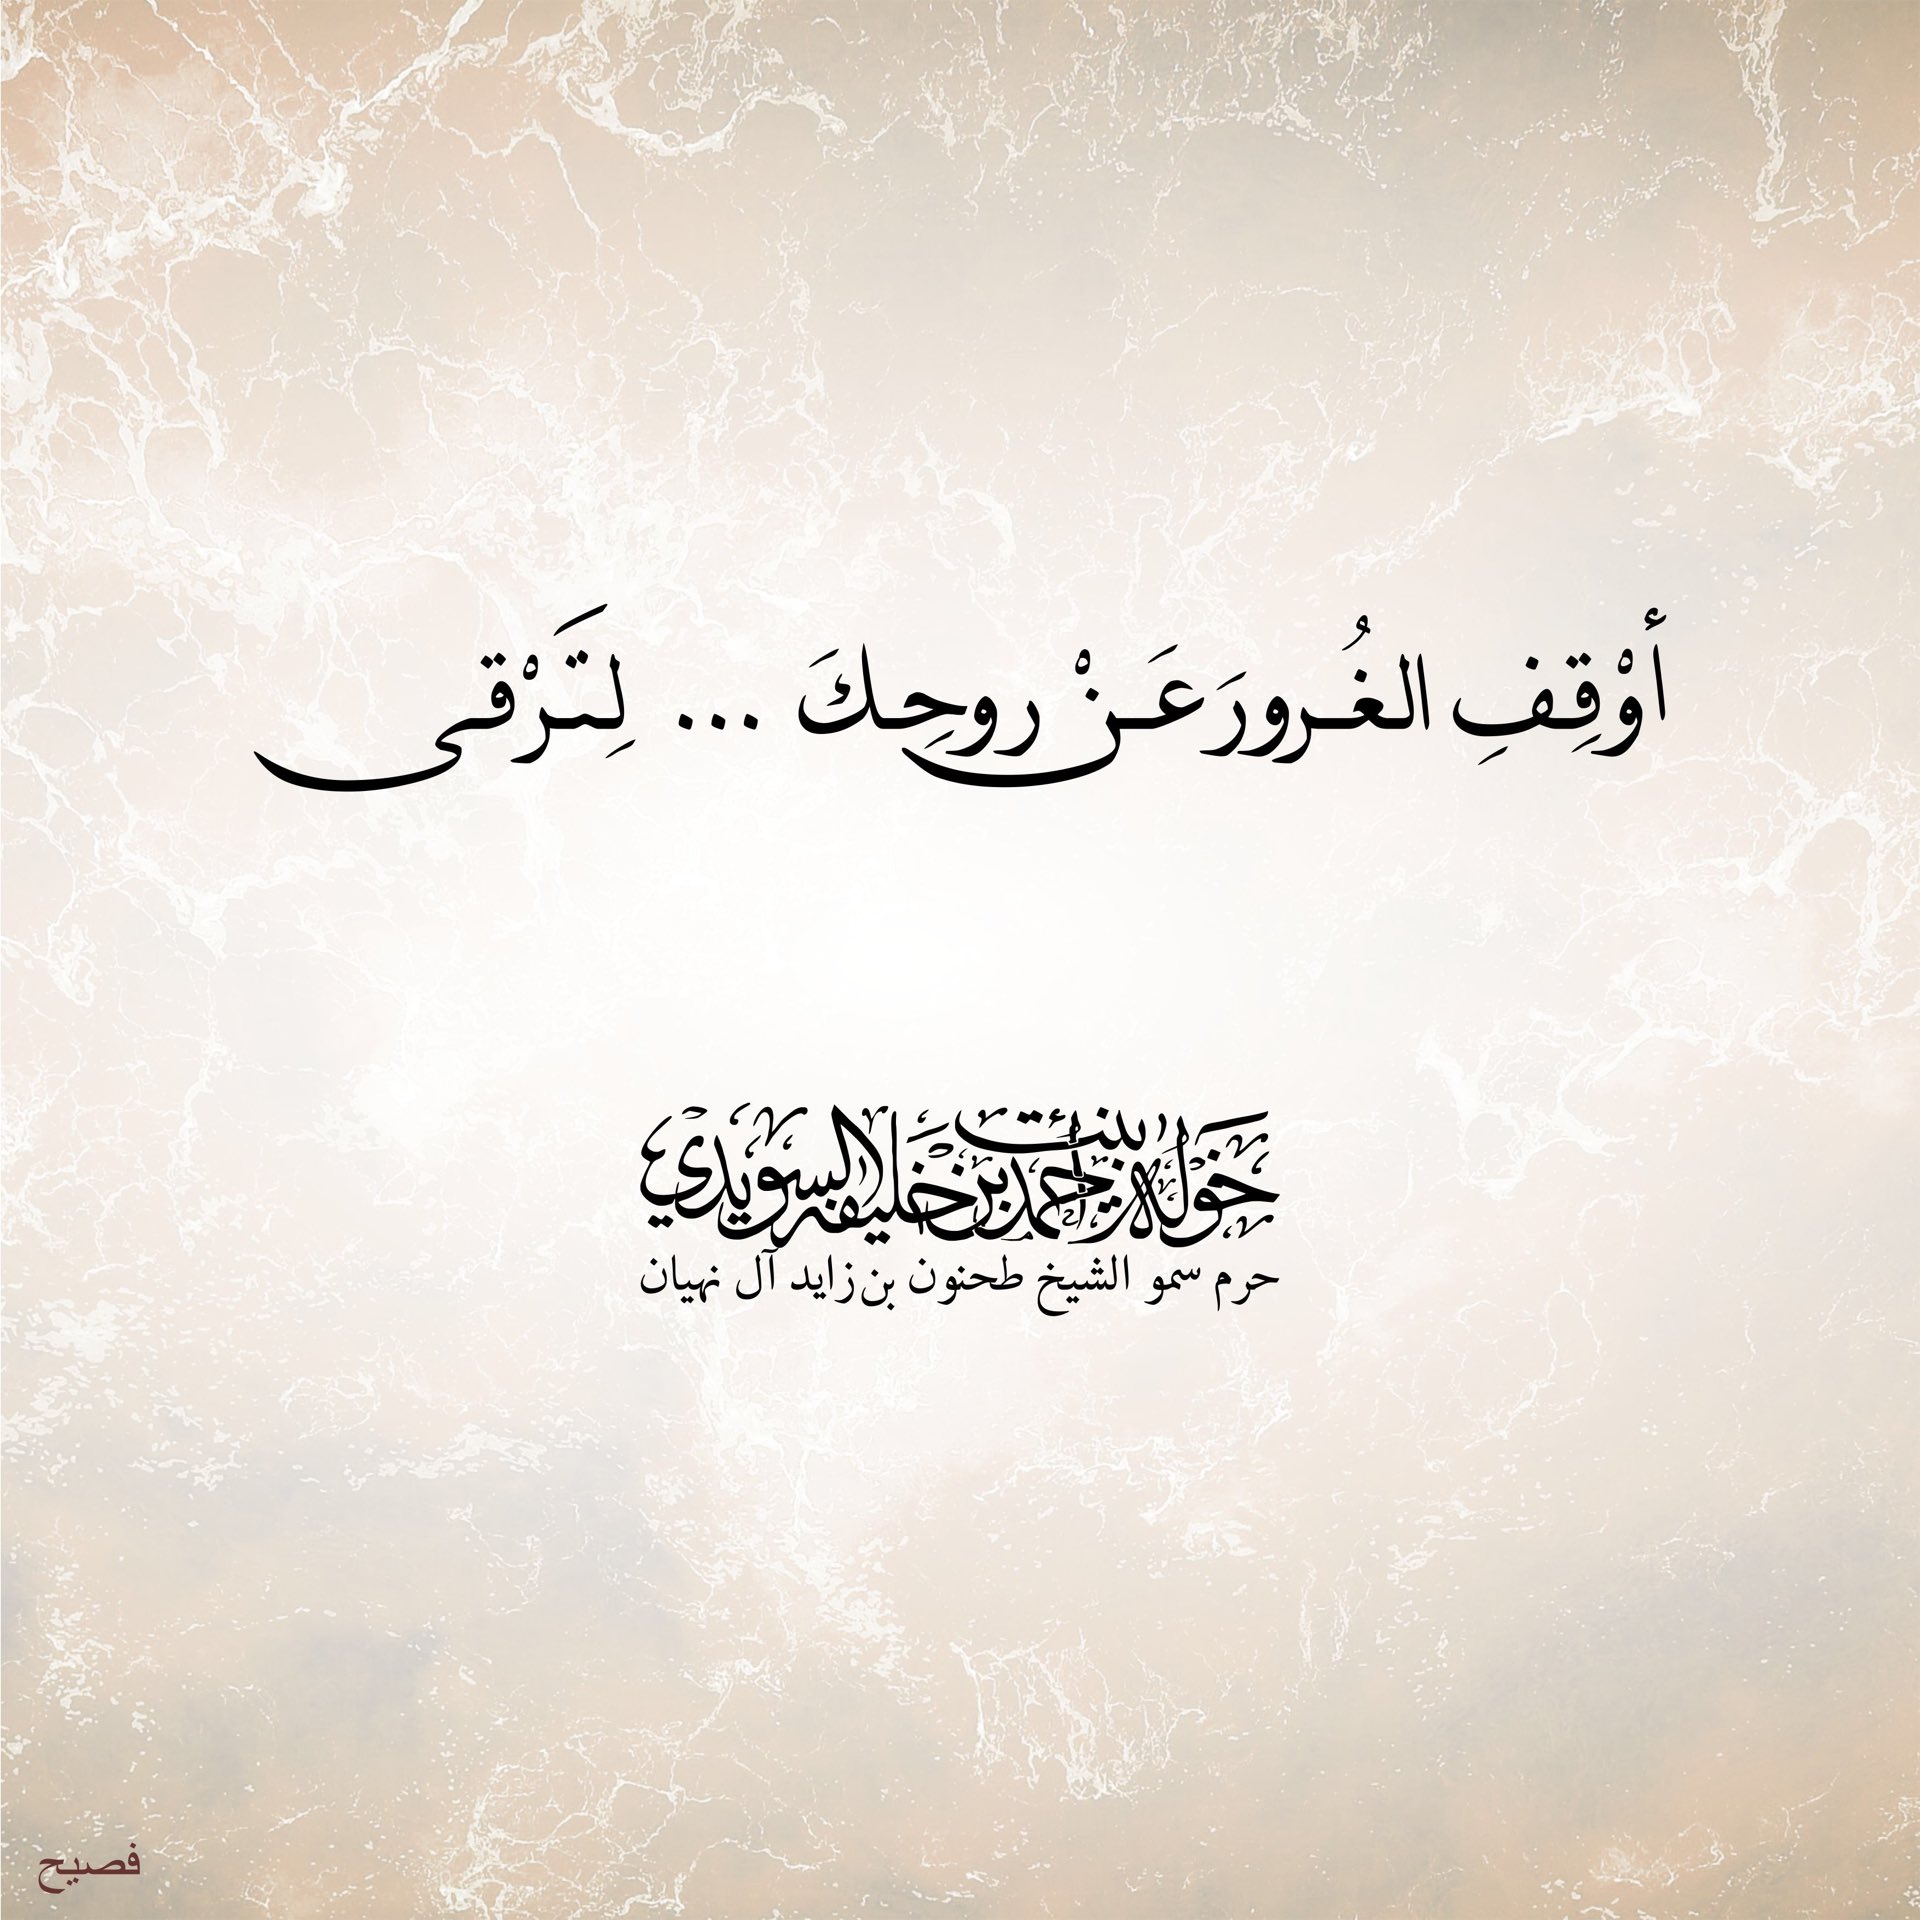 أوْقِفِ الغُرورَ عَنْ روحِكَ ... لِتَرْقى
خولة بنت أحمد بن خليفة السويدي
حرم سمو الشيخ طحنون بن زايد آل نهيان
فصيح